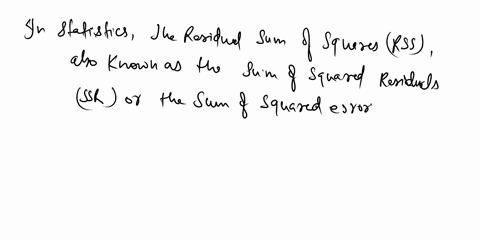 In Statistics, The Residual Sum of Squares (RSS),
also known as the Sum of Squared Residuals
(SSR) or the Sum of Squared error